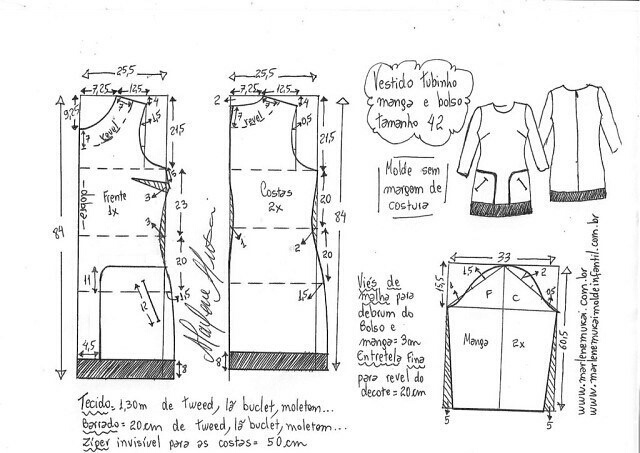 25,5
7,25 12,5
9,25
7
7
revel
4
1,5
21,5
5
dobra
Frente
1x
3
3
23
84
20
11
12
1,5
4,5
8
25,5
7,25 12,5
2
7
7
revel
4
0,5
21,5
Costas
2x
20
84
1
2
20
1,5
8
Marlene Mukai
Vestido tubinho
manga e bolso
tamanho 42
Molde sem
margem de
costura
Viés de
malha para
debrum do
Bolso e
manga = 3m
Entretela Fina
para revel do
decote = 20cm
33
15,5
1,5
2
1
0,5
F C
Manga 2x
60,5
5 5
www.marlenemukai.com.br
www.marlenemukaimoldeinfantil.com.br
Tecido = 1,30m de tweed, lã buclet, moletom...
Barrado = 20cm de tweed, lã buclet, moletom...
Zíper invisível para as costas = 50cm